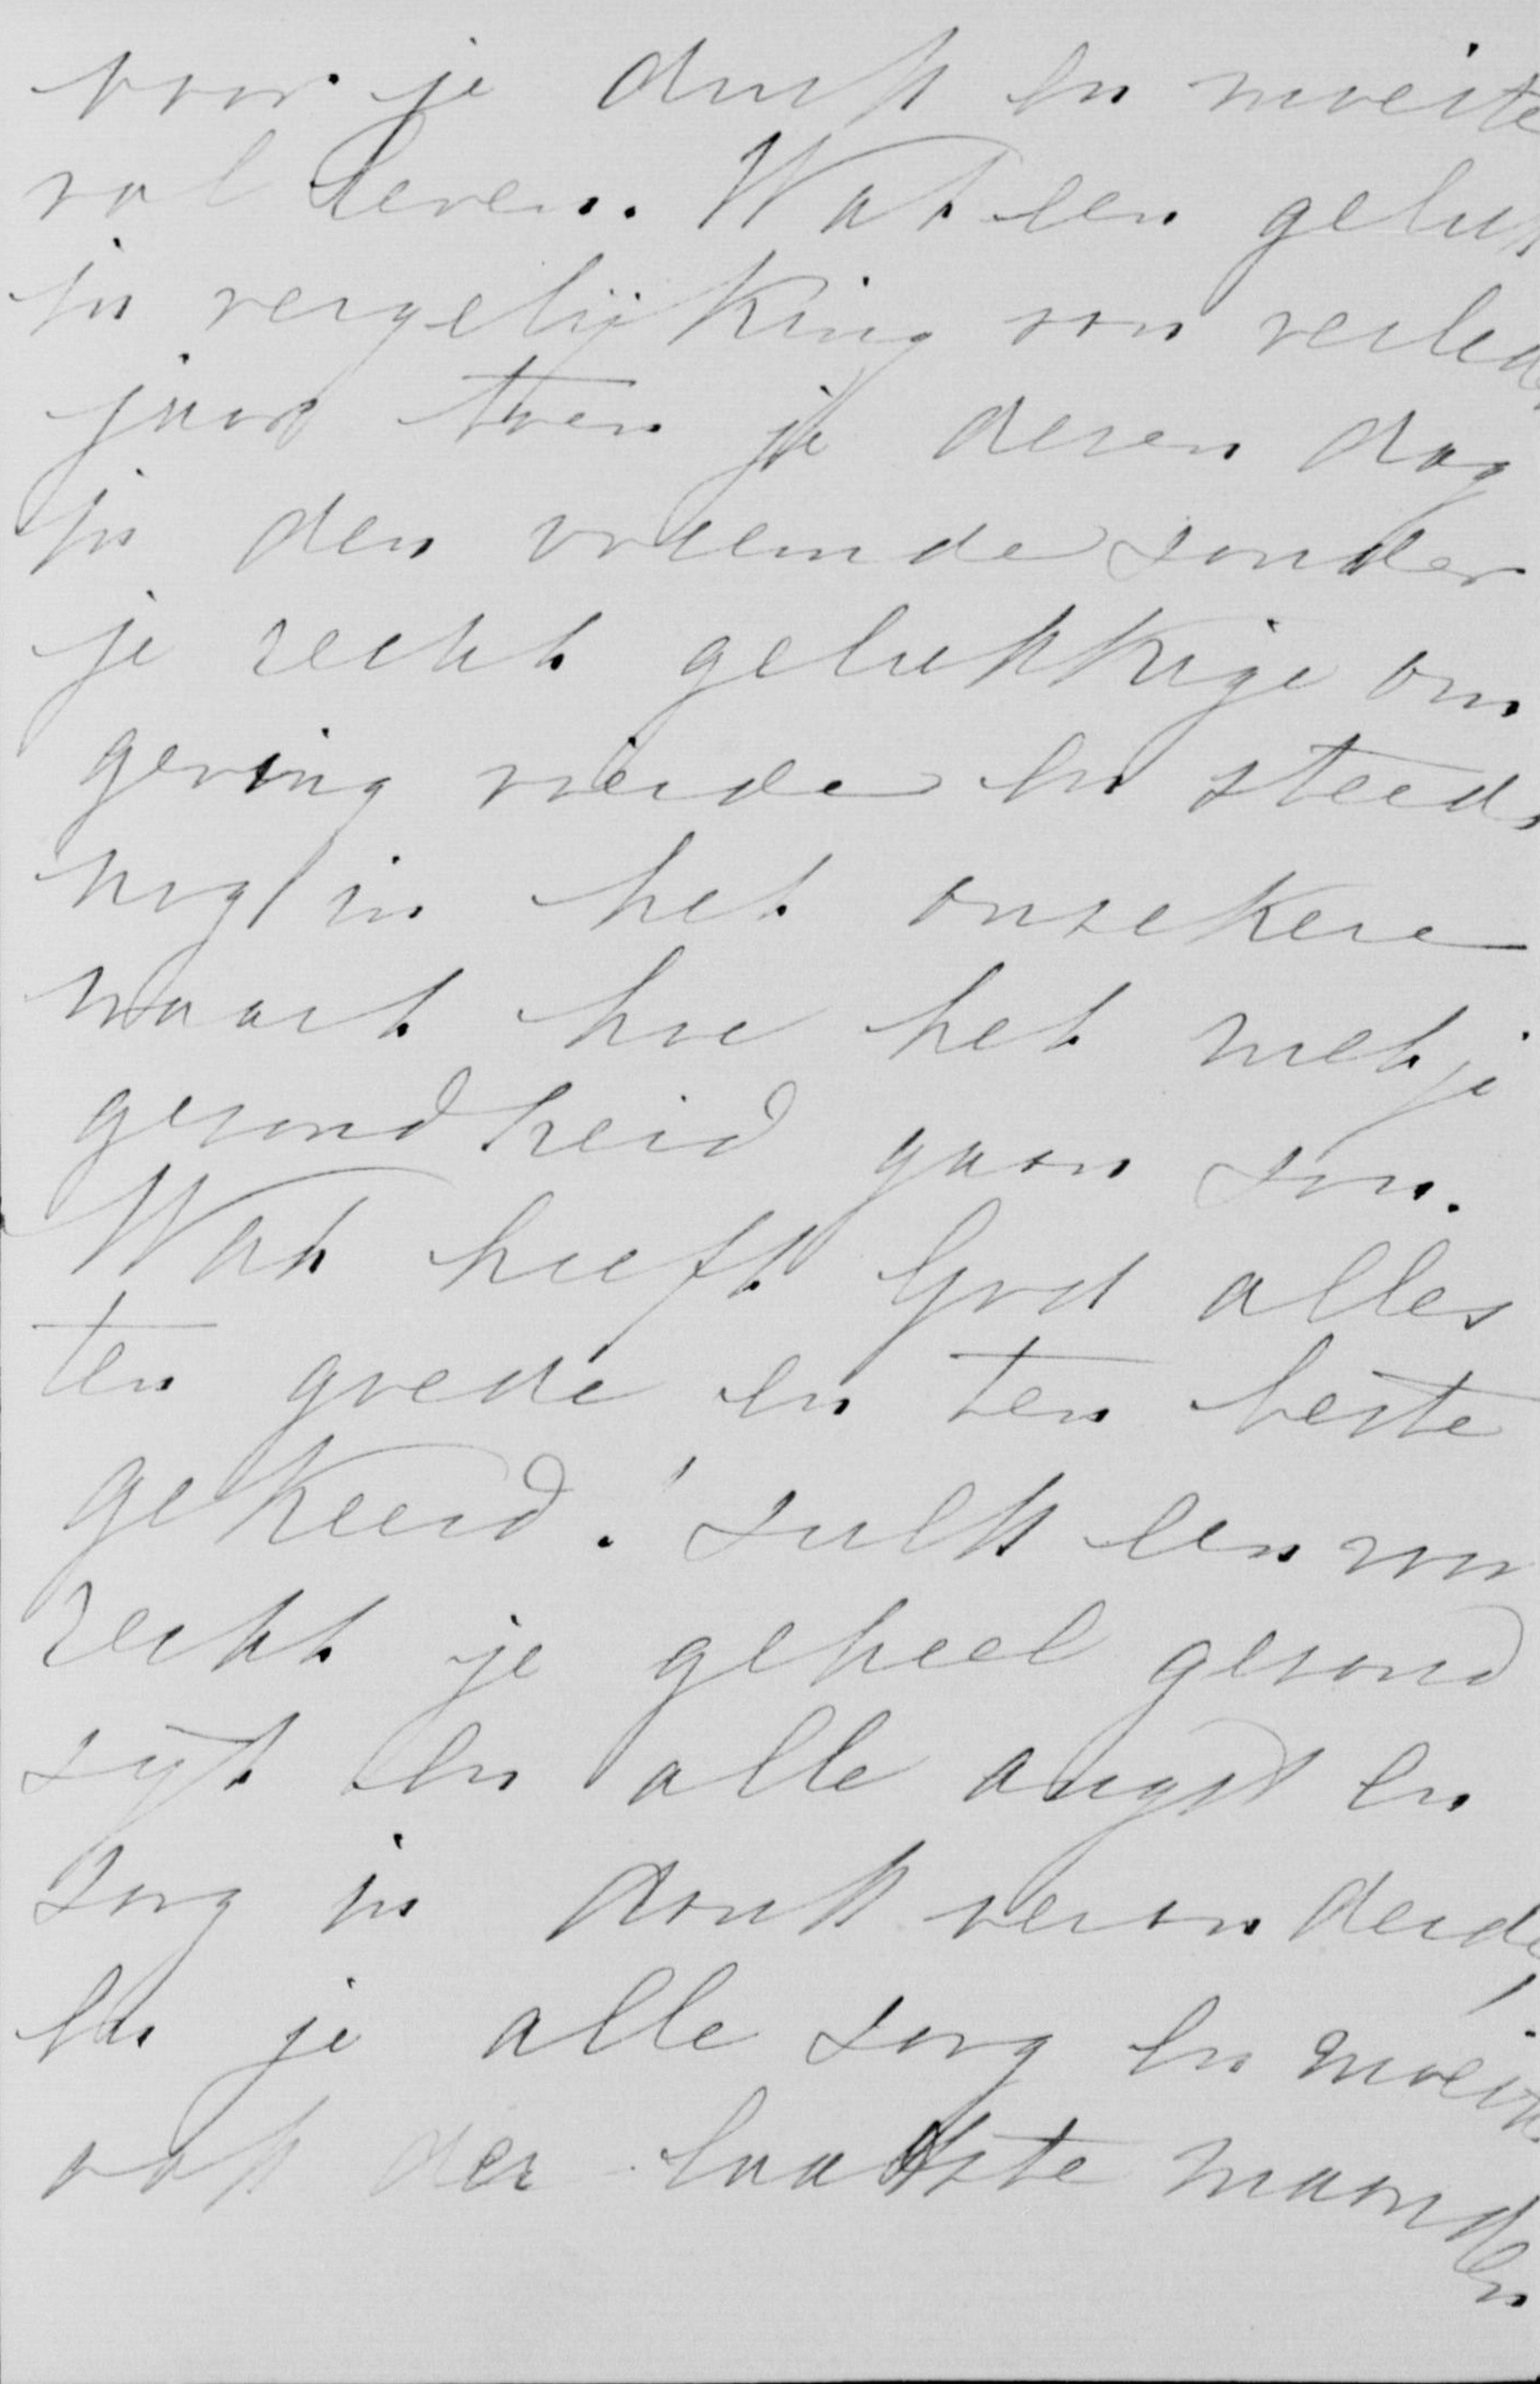 voor je druk en moeite
vol leven. Wat een geluk
in vergelijking van verleden
jaar toen je dezen dag
in den vreemde zonder
je recht gelukkige om
geving vierde en steeds
nog in het onzekere
waart hoe het met je
gezondheid gaan zou.
Wat heeft God alles
ten goede en ten beste
gekeerd! zulk een voor
recht je geheel gezond
zijt en alle angst en
zorg in dank veranderde,
en je alle zorg en moeite
ook der laatste maanden